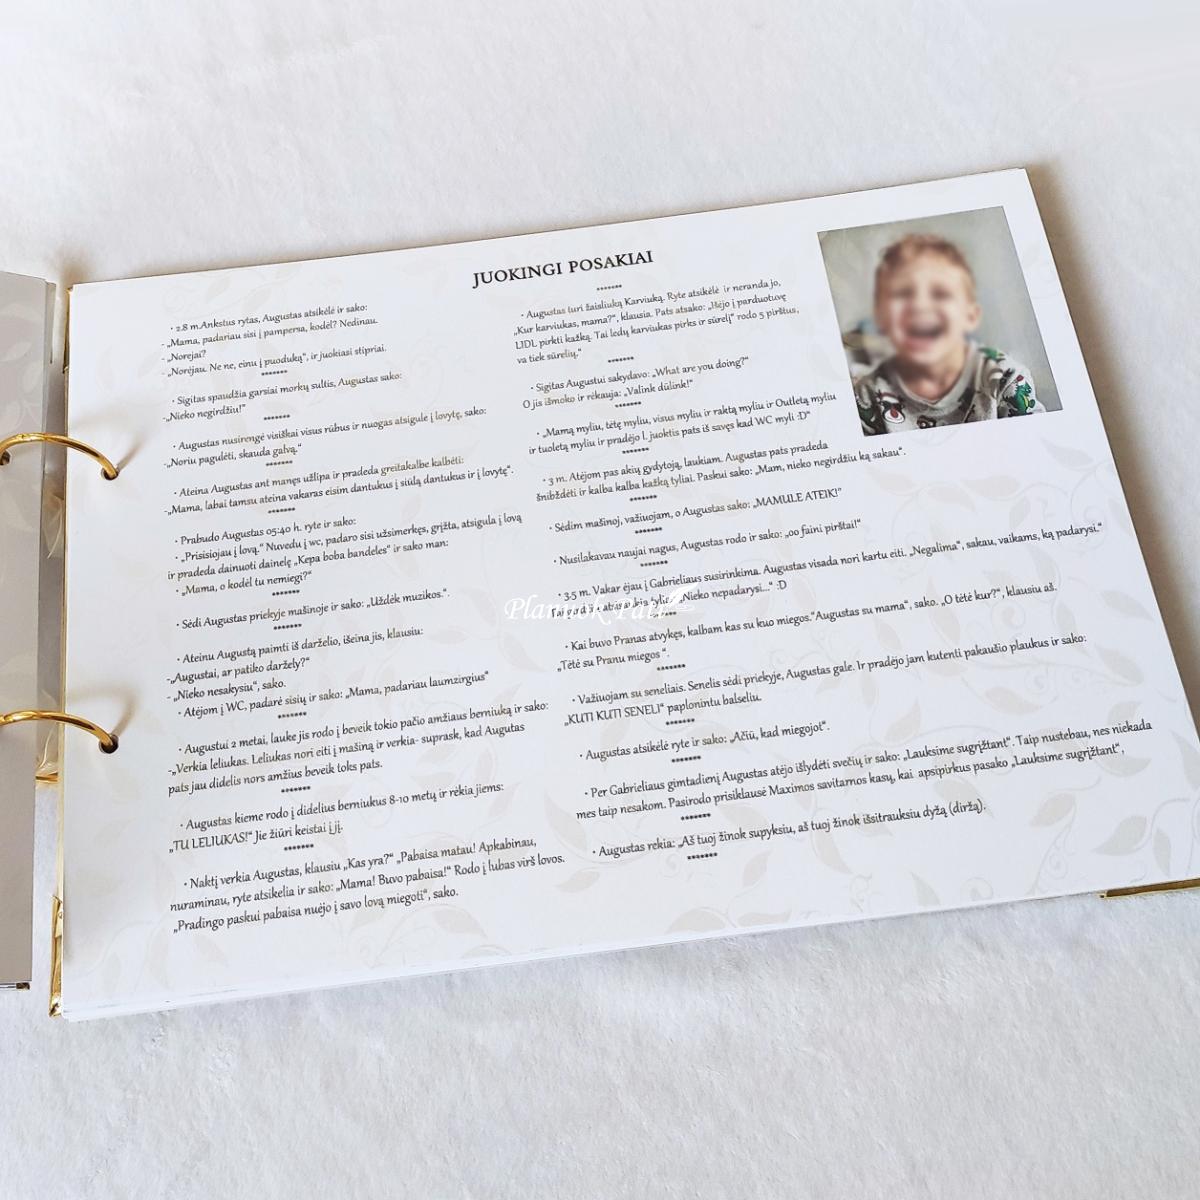 JUOKINGI POSAKIAI
• 2.8 m.Ankstus rytas, Augustas atsikėlė ir sako:
- „Mama, padariau sisi į pampersa, kodėl? Nedinau.
- „Norėjai?
- „Norėjau. Ne ne, einu į puoduką“, ir juokiasi stipriai.
*******
• Sigitas spaudžia garsiai morkų sultis, Augustas sako:
-„Nieko negirdžiu!“
*******
• Augustas nusirengė visiškai visus rūbus ir nuogas atsigulė į lovytę, sako:
-„Noriu pagulėti, skauda galvą.“
*******
• Ateina Augustas ant manęs užlipa ir pradeda greitakalbe kalbėti:
-„Mama, labai tamsu ateina vakaras eisim dantukus į siūlą dantukus ir į lovytę“.
*******
• Prabudo Augustas 05:40 h. ryte ir sako:
• „Prisisiojau į lovą.“ Nuvedu į wc, padaro sisi užsimerkęs, grįžta, atsigula į lovą
ir pradeda dainuoti dainelę „Kepa boba bandeles“ ir sako man:
• „Mama, o kodėl tu nemiegi?“
*******
• Sėdi Augustas priekyje mašinoje ir sako: „Uždėk muzikos.“.
*******
• Ateinu Augustą paimti iš darželio, išeina jis, klausiu:
-„Augustai, ar patiko daržely?“
-„Nieko nesakysiu“, sako.
• Atėjom į WC, padarė sisių ir sako: „Mama, padariau laumžirgius“
*******
• Augustui 2 metai, lauke jis rodo į beveik tokio pačio amžiaus berniuką ir sako:
-„Verkia leliukas. Leliukas nori eiti į mašiną ir verkia- suprask, kad Augutas
pats jau didelis nors amžius beveik toks pats.
*******
• Augustas kieme rodo į didelius berniukus 8-10 metų ir rėkia jiems:
„TU LELIUKAS!“ Jie žiūri keistai į jį.
*******
• Naktį verkia Augustas, klausiu „Kas yra?“ „Pabaisa matau! Apkabinau,
nuraminau, ryte atsikelia ir sako: „Mama! Buvo pabaisa!“ Rodo į lubas virš lovos.
„Pradingo paskui pabaisa nuėjo į savo lovą miegoti“, sako.
*******
• Augustas turi žaisliuką Karviuką. Ryte atsikėlė ir neranda jo,
„Kur karviukas, mama?“, klausia. Pats atsako: „Išėjo į parduotuvę
LIDL pirkti kažką. Tai ledų karviukas pirks ir sūrelį“ rodo 5 pirštus,
va tiek sūrelių.“
*******
• Sigitas Augustui sakydavo: „What are you doing?“
O jis išmoko ir rėkauja: „Valink dūlink!“
*******
• „Mamą myliu, tėtę myliu, visus myliu ir raktą myliu ir Outletą myliu
ir tuoletą myliu ir pradėjo l. juoktis pats iš savęs kad WC myli :D“
*******
• 3 m. Atėjom pas akių gydytoją, laukiam. Augustas pats pradeda
šnibždėti ir kalba kalba kažką tyliai. Paskui sako: „Mam, nieko negirdžiu ką sakau“.
*******
• Sėdim mašinoj, važiuojam, o Augustas sako: „MAMULE ATEIK!“
*******
• Nusilakavau naujai nagus, Augustas rodo ir sako: „oo faini pirštai!“
*******
• 3.5 m. Vakar ėjau į Gabrieliaus susirinkima. Augustas visada nori kartu eiti. „Negalima“, sakau, vaikams, ką padarysi.“
„Nieko nepadarysi...“ :D
Plannok Pati
• Kai buvo Pranas atvykęs, kalbam kas su kuo miegos.“Augustas su mama“, sako. „O tėtė kur?“, klausiu aš.
„Tėtė su Pranu miegos “.
*******
• Važiuojam su seneliais. Senelis sėdi priekyje, Augustas gale. Ir pradėjo jam kutenti pakaušio plaukus ir sako:
„KUTI KUTI SENELI“ paplonintu balseliu.
*******
• Augustas atsikėlė ryte ir sako: „Ačiū, kad miegojot“.
*******
• Per Gabrieliaus gimtadienį Augustas atėjo išlydėti svečių ir sako: „Lauksime sugrįžtant“. Taip nustebau, nes niekada
mes taip nesakom. Pasirodo prisiklausė Maximos savitarnos kasų, kai apsipirkus pasako „Lauksime sugrįžtant“,
*******
• Augustas rekia: „Aš tuoj žinok supyksiu, aš tuoj žinok išsitrauksiu dyžą (diržą).
*******